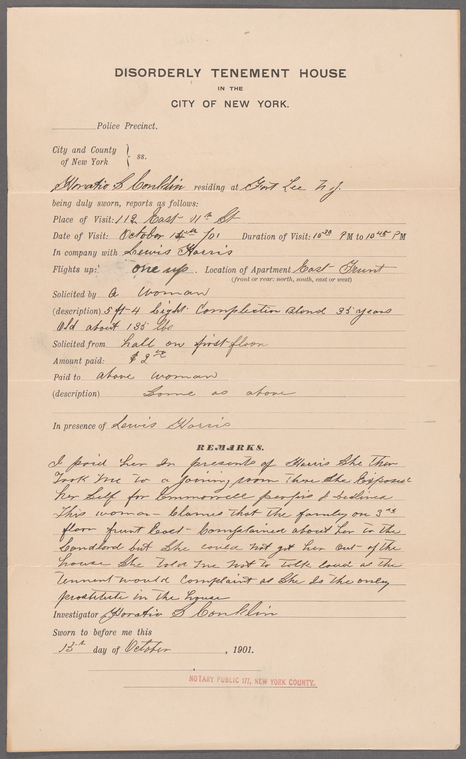 DISORDERLY TENEMENT HOUSE
IN THE
CITY OF NEW YORK.
Police Precinct.
City and County
of New York } ss.
Horatio S Conklin residing at Fort Lee N.J.
being duly sworn, reports as follows:
Place of Visit: 112 East 11th St
Date of Visit: October /01 Duration of Visit: 10 30 PM to 10 45 PM
In company with Lewis Harris
Flights up: one up Location of Apartment East Frunt
(front or rear; north, south, east or west)
Solicited by a woman
(description) 5 ft-4 Light Complection Blond 35 years
old about 135 lbs
Solicited from hall on first floor
Amount paid: $2
Paid to above woman
(description) Same as above
In presence of Lewis Harris
REMARKS.
I paid her In presents of Harris She then
Took me to a joining room there she Exposed
her Self for
This woman Claimes that the family on 3rd
floor frunt East Complained about her to the
Landlord but She could not get her out of the
house She told me not to talk loud as the
tennent would Complaint as She Is the only
prostitute in the house
Investigator Horatio S Conklin
Sworn to before me this
day of October , 1901.
NOTARY PUBLIC 177, NEW YORK COUNTY.